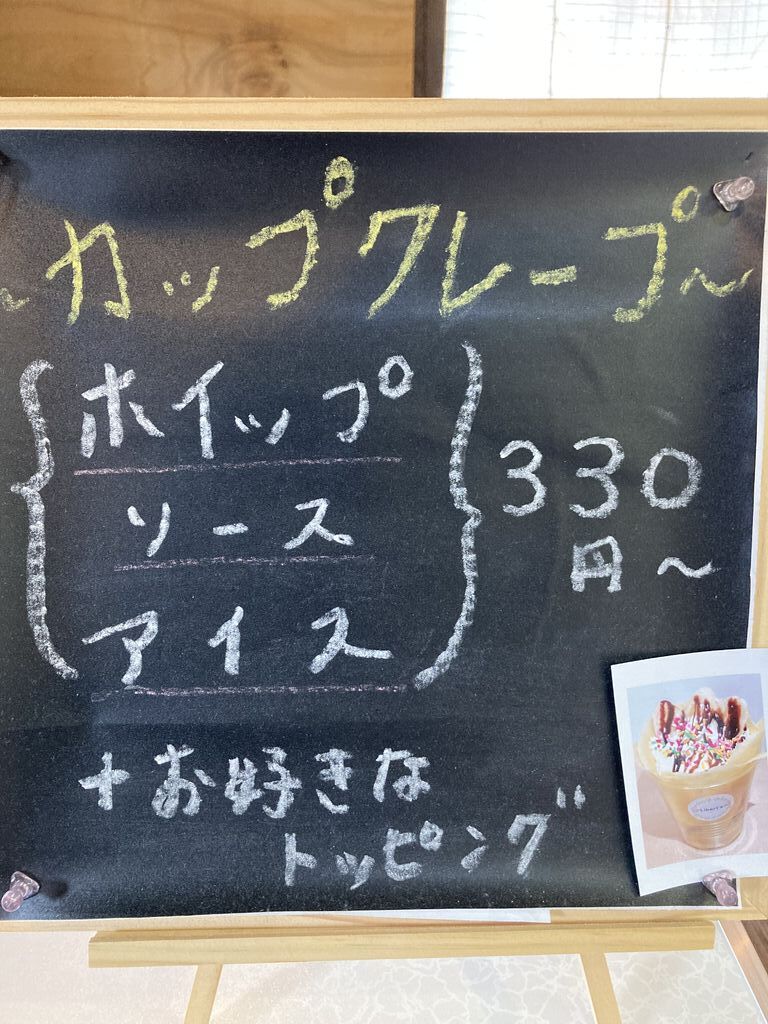 ~カップクレープ~
ホイップ
ソース
アイス
330
円~
+お好きな
トッピング